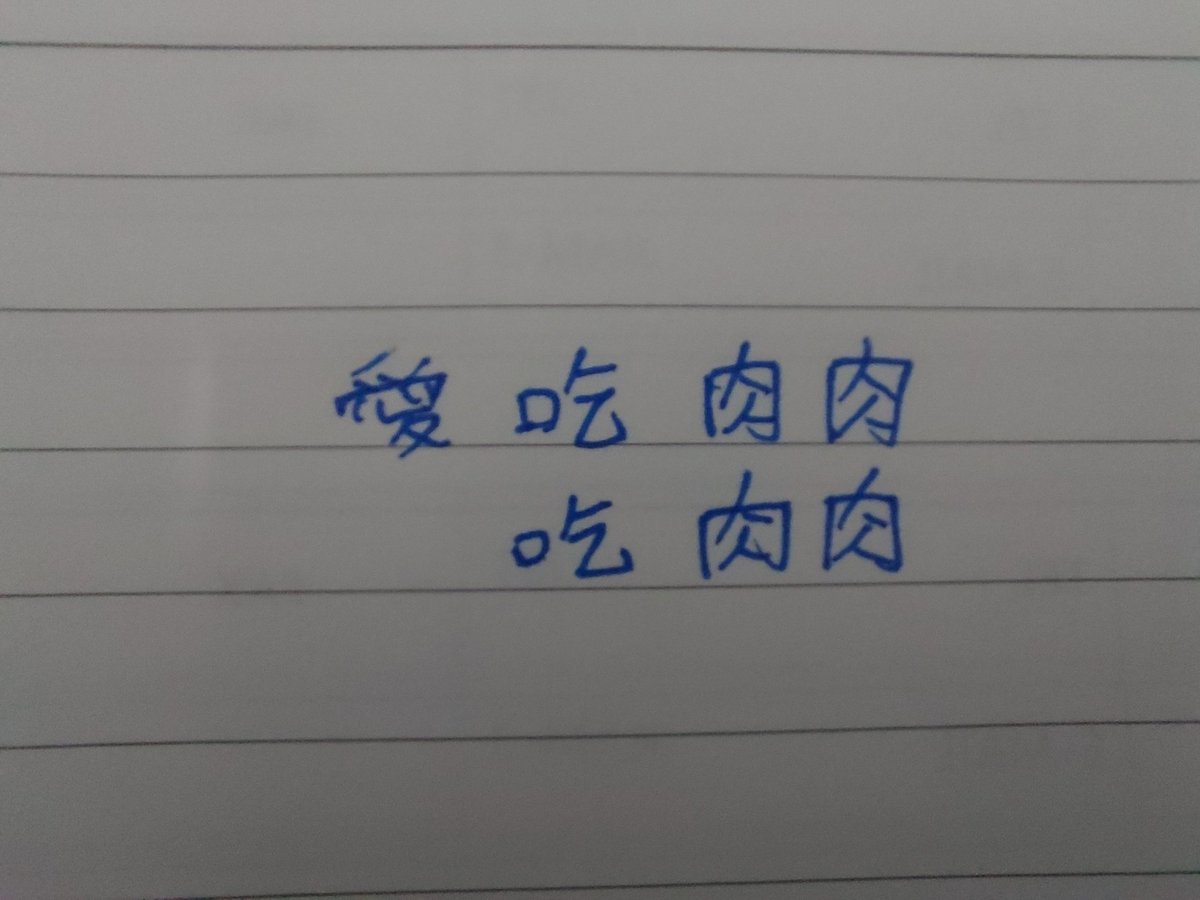 愛吃肉肉
吃肉肉